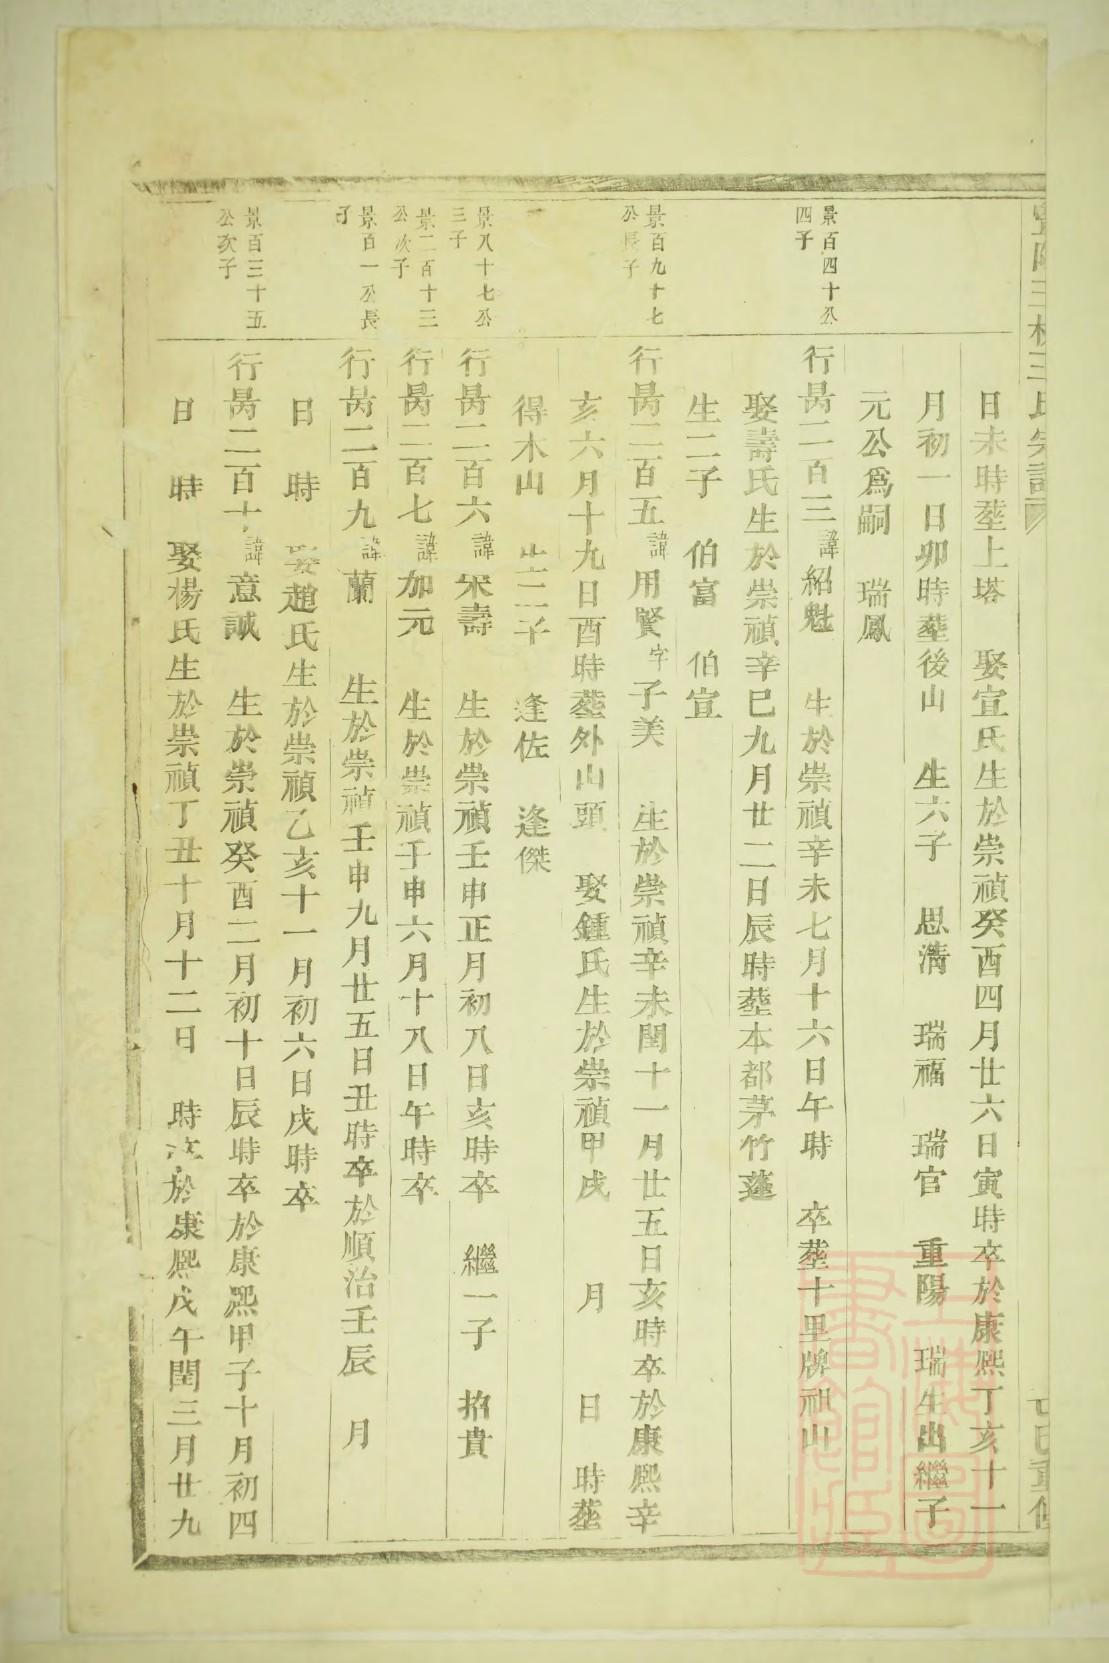 日未時塟上塔　娶宣氏生於崇禎癸酉四月廿六日寅時卒於康熙丁亥十一
月初一日卯時塟後山　生六子　思淸　瑞福　瑞官　重陽　瑞生出繼子
元公爲嗣　瑞鳳
景百四十公
四子
行昺二百三諱紹魁　生於崇禎辛未七月十六日午時　卒塟十里牌祖山
娶壽氏生於崇禎辛巳九月廿二日辰時塟本都茅竹蓬
生二子　伯富　伯宣
景百九十七
公長子
行昺二百五諱用賢字子美　生於崇禎辛未閏十一月廿五日亥時卒於康熙辛
亥六月十九日酉時塟外山頭　娶鍾氏生於崇禎甲戌　月　日　時塟
得木山　生二子　逢佐　逢傑
景八十七公
三子
行昺二百六諱宋壽　生於崇禎壬申正月初八日亥時卒　繼一子　招貴
景二百十三
公次子
行昺二百七諱加元　生於崇禎壬申六月十八日午時卒
景百一公長
子
行昺二百九諱蘭　生於崇禎壬申九月廿五日丑時卒於順治壬辰　月
日　時　娶趙氏生於崇禎乙亥十一月初六日戌時卒
景百三十五
公次子
行昺二百十諱意誠　生於崇禎癸酉二月初十日辰時卒於康熙甲子十月初四
日　時　娶楊氏生於崇禎丁丑十月十二日　時卒於康熙戊午閏三月廿九